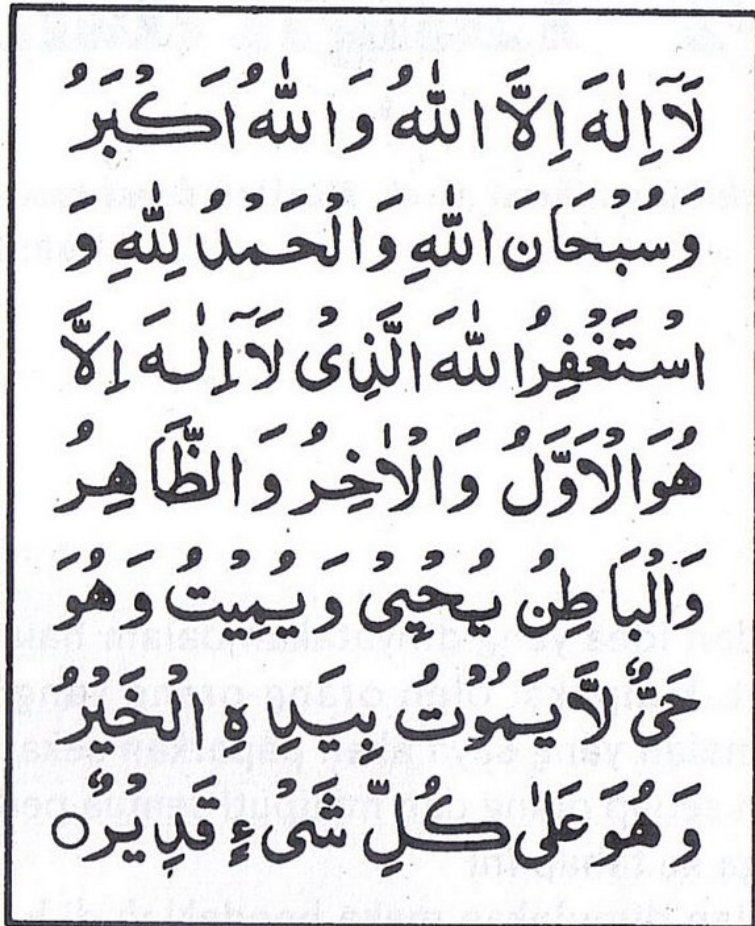 لَآ اِلٰهَ اِلَّا اللّٰهُ وَ اللّٰهُ اَكْبَرُ
وَسُبْحَان اللّٰهِ وَالْحَمْدُ لِلّٰهِ وَ
اسْتَغْفِرُ اللّٰهَ الَّذِىْ لَآ اِلٰـهَ اِلَّا
هُوَ الْاَوَّلُ وَالْاٰخِرُ وَ الظَّاهِرُ
وَالْبَاطِنُ يُحْيِىْ وَيُمِيْتُ وَهُوَ
حَىٌّ لَّا يَمُوْتُ بِيَدِهِ الْخَيْرُ
وَ هُوَ عَلٰى كُلِّ شَىْءٍ قَدِيْرٌ ○